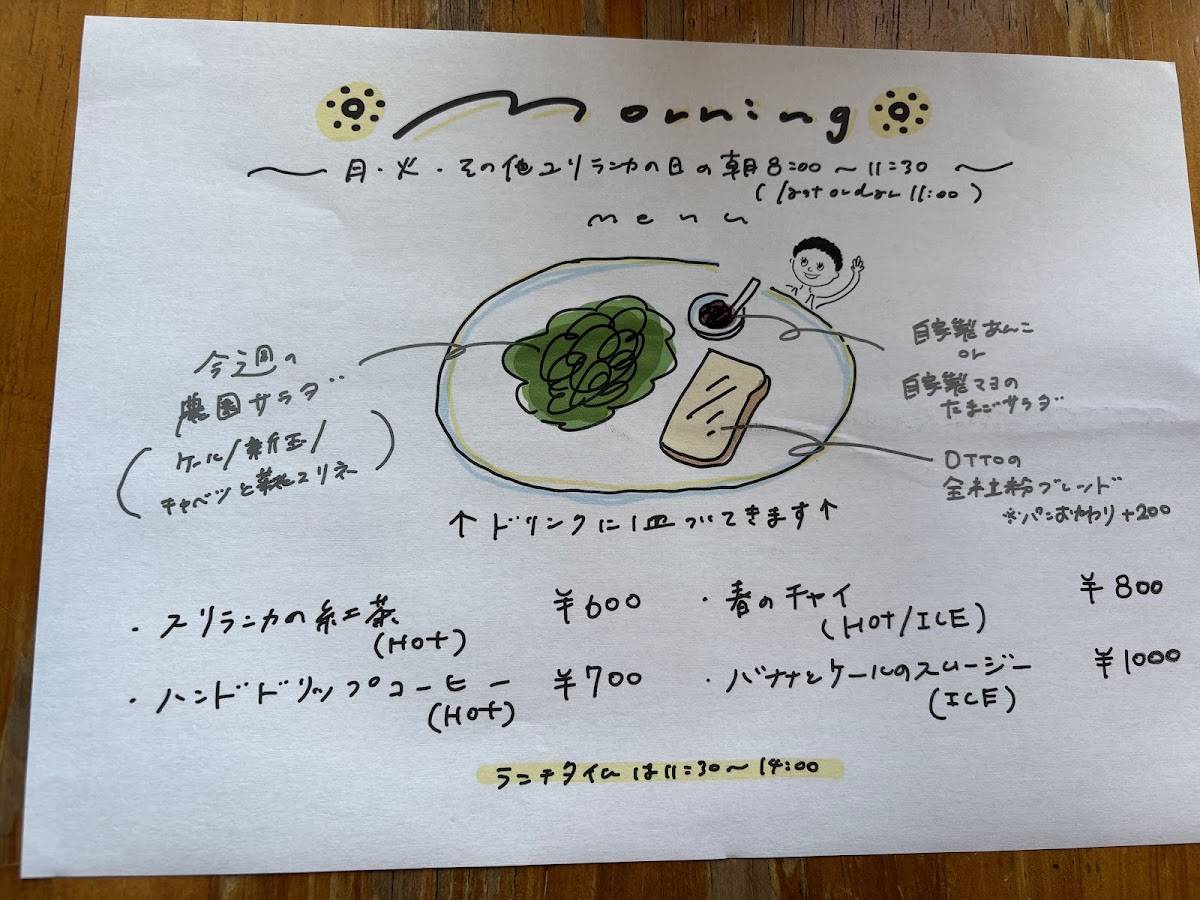 Morning
月・火・その他ユリランカの日の朝8:00〜11:30
(last order 11:00)
menu
今週の
農園サラダ
(ケール/新玉/
キャベツと
自家製あんこ
or
自家製マヨの
たまごサラダ
OTTOの
全粒粉ブレッド
※パンおかわり+200
↑ドリンクに1皿ついてきます↑
・スリランカの紅茶 ¥600
(HOT)
・ハンドドリップコーヒー ¥700
(HOT)
・春のチャイ ¥800
(HOT/ICE)
・バナナとケールのスムージー ¥1000
(ICE)
ランチタイムは11:30〜14:00